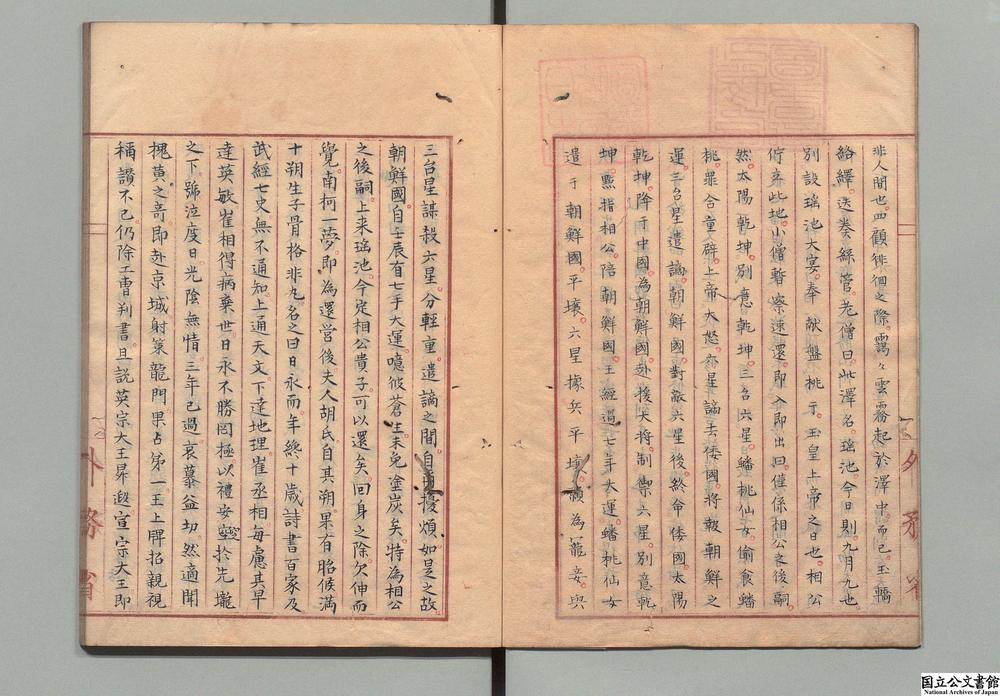 非人間也四顧徘徊之際靄々雲霧起於澤中而已玉轎
絡繹迭奏絲管老僧曰此澤名瑤池今日則九月九也
別設瑤池大宴奉献盤桃于玉皇上帝之日也相公
佇立此地小僧暫察速還即入即出曰僅係相公之後嗣
然太陽乾坤別意乾坤三台六星蟠桃仙女偷食蟠
桃罪合重辟上帝大怒六星謫去倭國將報朝鮮之
運三台星遣謫朝鮮國對敵六星後終命倭國太陽
乾坤降于中國為朝鮮國赴援天將制禦六星別意乾
坤點指相公陪朝鮮國王經過七年大運蟠桃仙女
遣于朝鮮國平壤六星據兵平壤 為寵妾與
三台星謀殺六星分輕重遣謫之間自 擾煩如是之故
朝鮮國自壬辰有七年大運噫彼蒼生未免塗炭矣特為相公
之後嗣上来瑤池今定相公貴子可以還矣回身之除欠伸而
覺南柯一夢即為還營後夫人胡氏自其朔果有胎候滿
十朔生子骨格非凡名之曰日永而年終十歲詩書百家及
武經七史無不通知上通天文下達地理崔丞相每慮其早
達英敏崔相得病棄世日永不勝罔極以禮安窆於先壠
之下號泣度日光陰無情三年已過哀慕益切然適聞
槐黄之奇即赴京城射策龍門果占第一王上牌招親視
稱讚不已仍除工曹判書且説英宗大王昇遐宣宗大王即
外務省
外務省
国立公文書館
National Archives of Japan